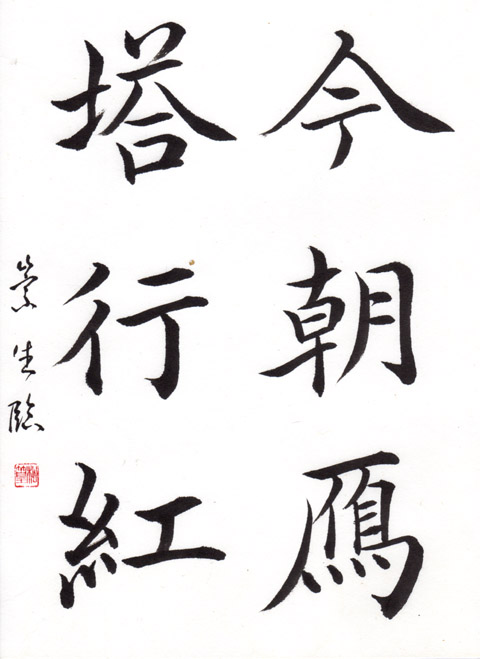 今朝鴈
塔行紅
崇生臨